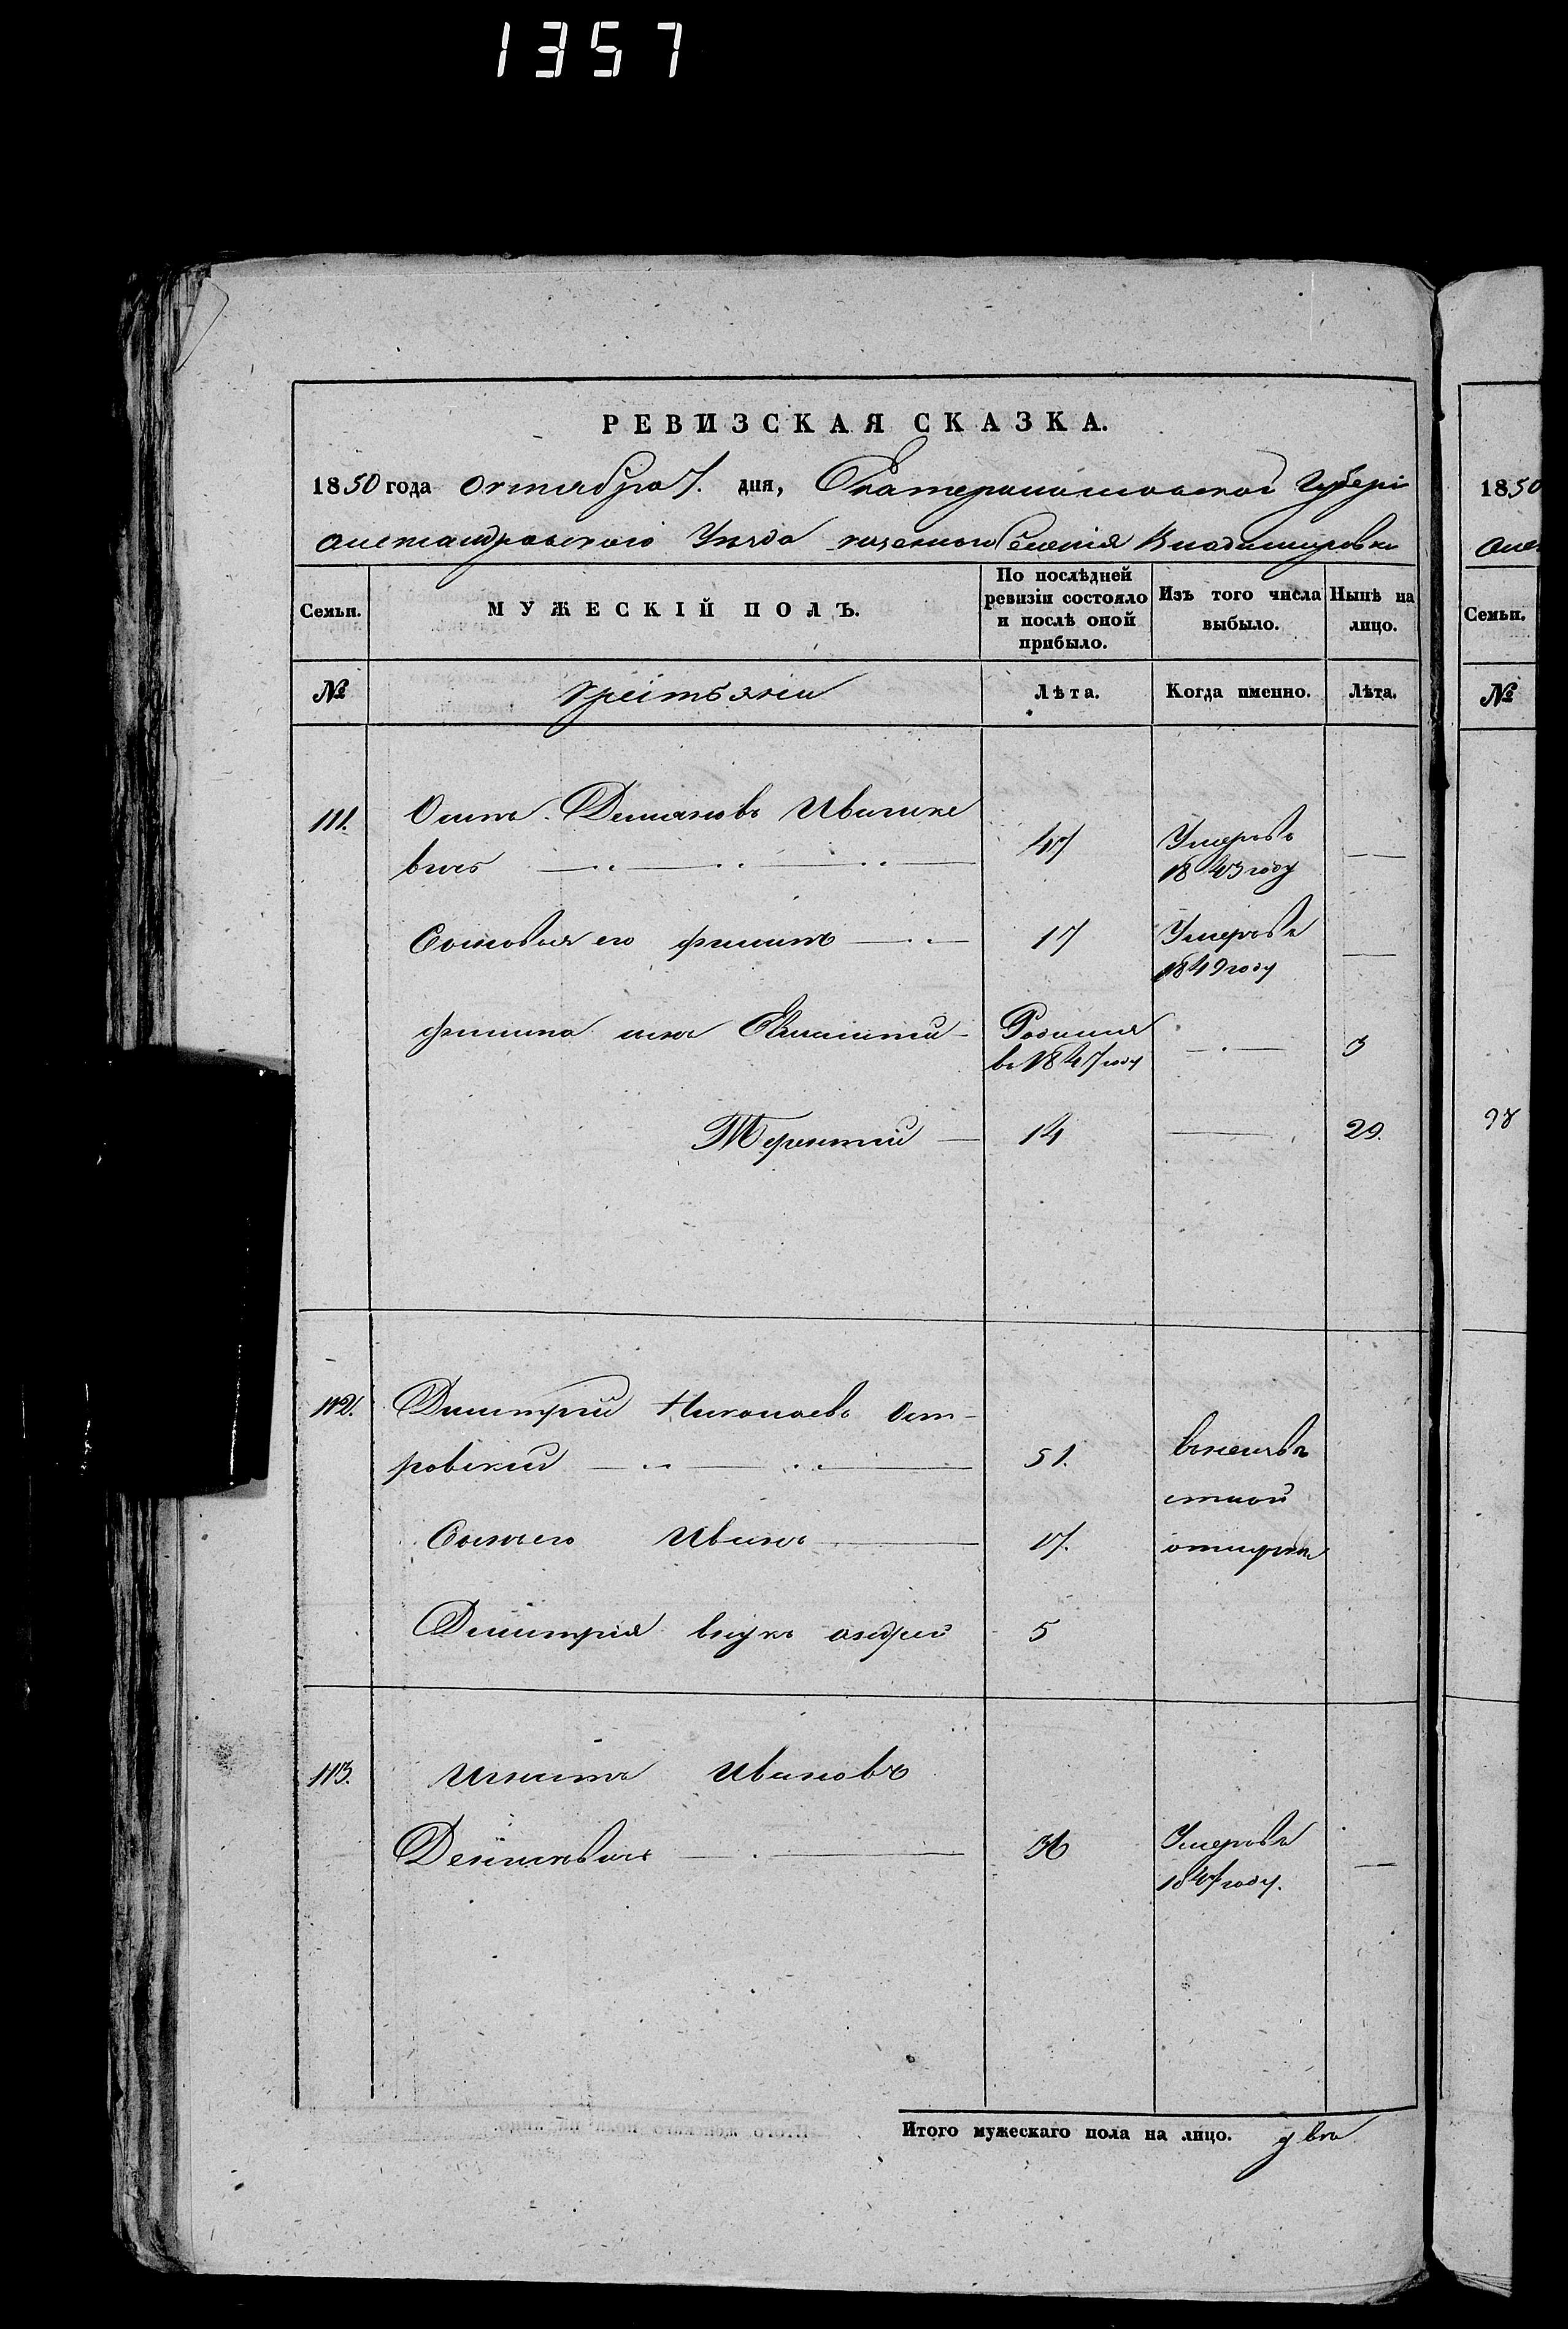 1357
РЕВИЗСКАЯ СКАЗКА.
1850 года октября 7. дня, Екатеринославской Губерніи
Александровскаго Уѣзда казеннаго Селенія Владимировки
Семьи. МУЖЕСКІЙ ПОЛЪ. По послѣдней ревизіи состояло и послѣ оной прибыло. Изъ того числа выбыло. Нынѣ на лицо.
№ крестьяне Лѣта. Когда именно. Лѣта.
111. Осипъ Демяновъ Ивашке
вичъ 47 Умеръ въ 1843 году —
Сыновья его Филипъ 17 Умеръ въ 1849 году —
Филипа сынъ Родился въ 1847 году — 3
Терентій 14 — 29.
112. Димитрій Николаевъ Ост-
ровскій 51. въ неизвѣ
стной
Сынъ его Иванъ 17. отлучкѣ
Димитрія внукъ андрей 5
113. Игнатъ Ивановъ
36 Умеръ въ 1847 году. —
Итого мужескаго пола на лицо. два
1850
Семьи.
№